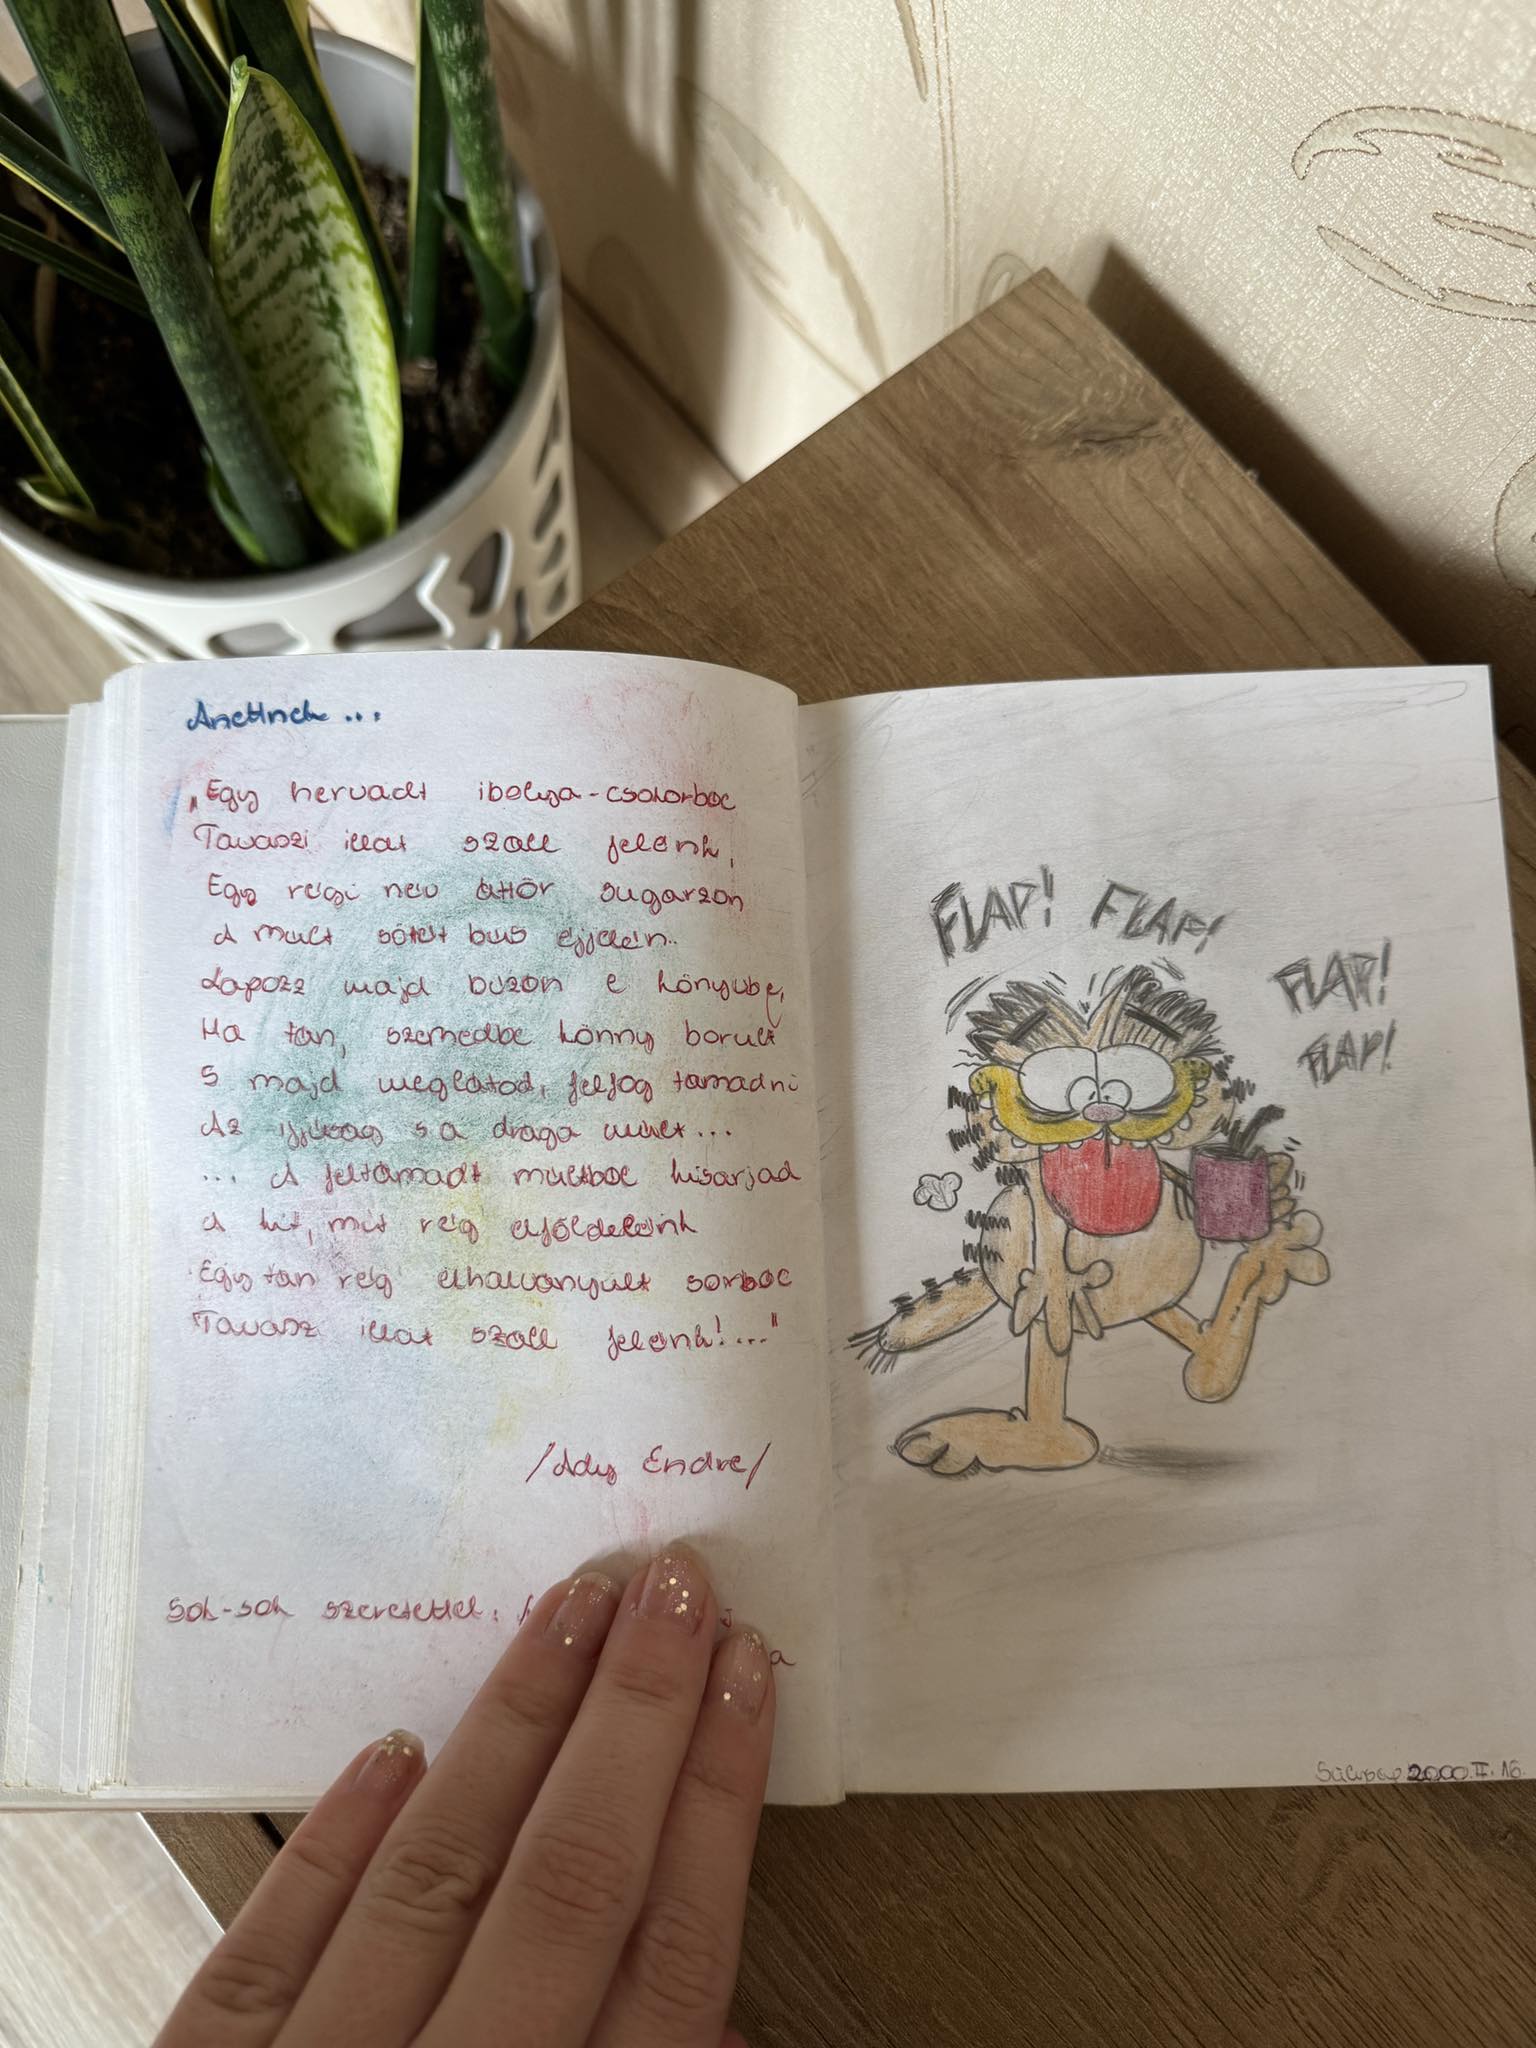 Anettnek ...
„Egy hervadt ibolya-csokorból
Tavaszi illat száll felénk,
Egy régi név áttör sugárzón
A mult sötét bús éjjelén..
Lapozz majd búzón e könyvbe,
Ha tán, szemedbe könny borult
S majd meglátod, felfog támadni
Az ifjúság s a drága mult...
... A feltámadt multból kisarjad
A hit, mit rég elföldelénk
Egy tán rég elhalványult sorból
Tavaszi illat száll felénk!..."
/Ady Endre/
Sok-sok szeretettel:
FLAP! FLAP!
FLAP!
FLAP!
2000.II.16.